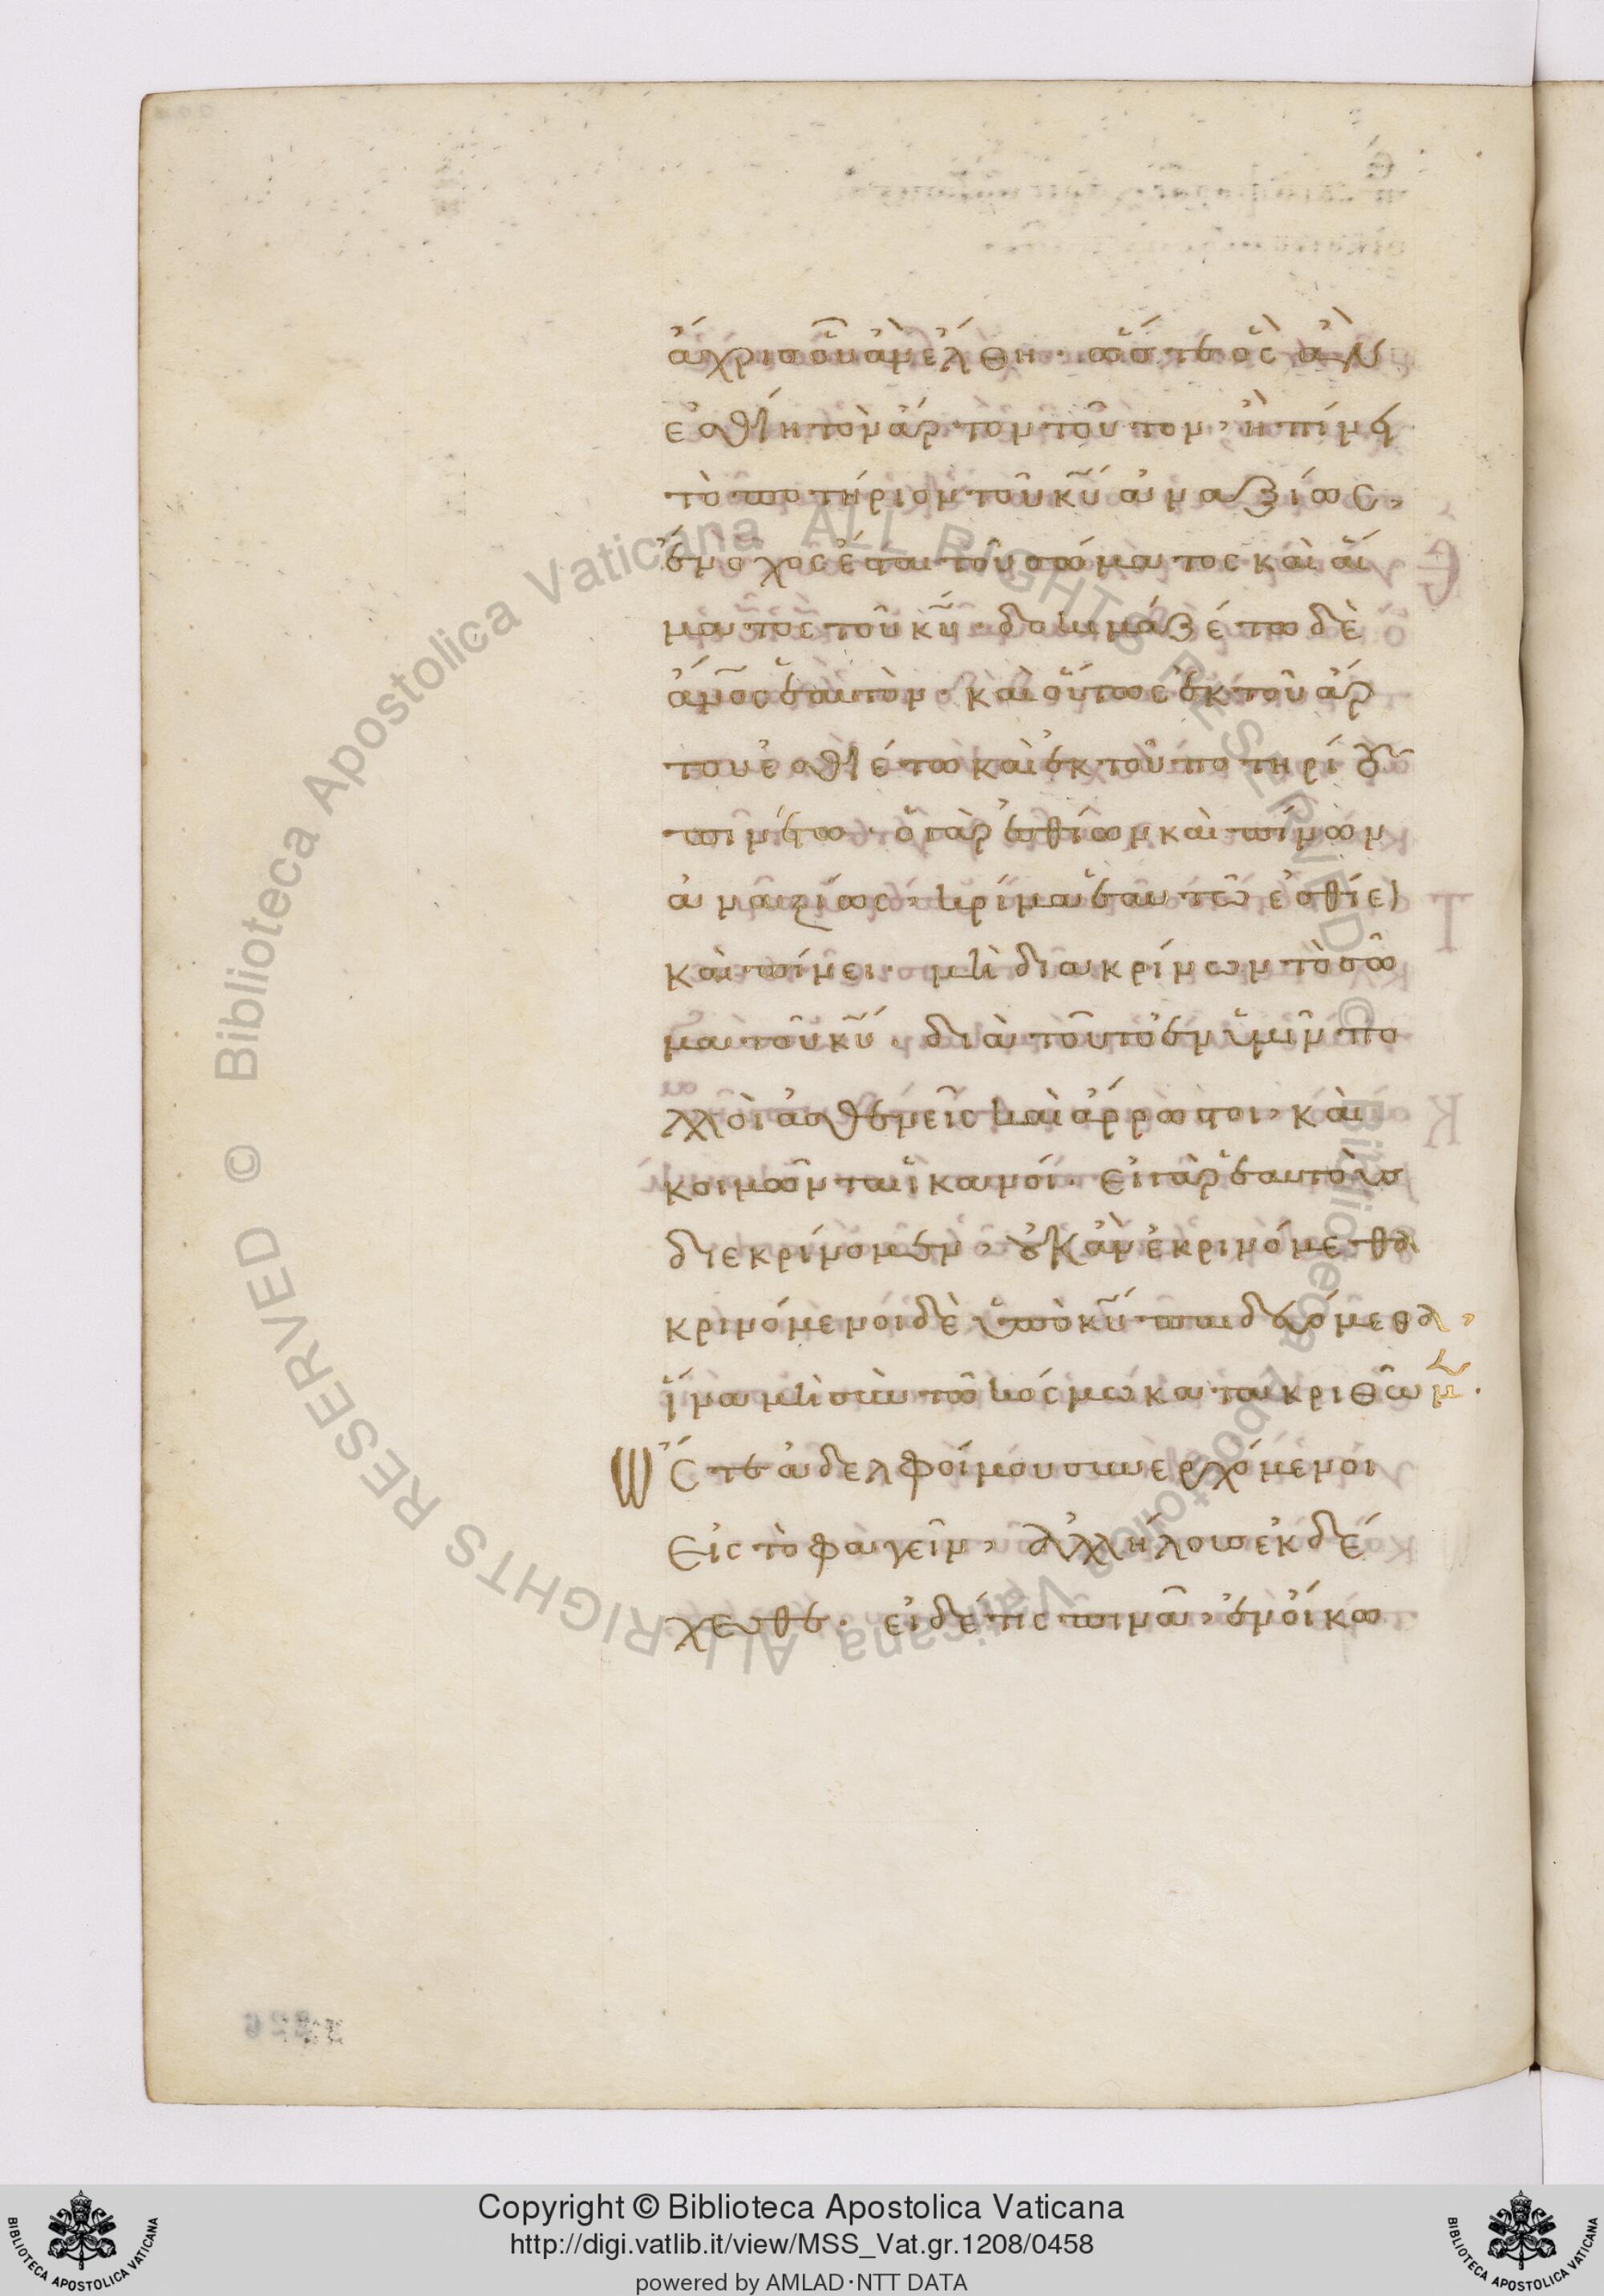 ἄχρις οὗ ἂν ἔλθη· ὥστε ὃς ἂν
ἐσθίη τὸν ἄρτον τοῦτον, ἢ πίνη
τὸ ποτήριον τοῦ κυ ἀναξίως,
ἔνοχος ἔσται τοῦ σώματος καὶ αἵ
ματος τοῦ κυ· δοκιμαζέτω δὲ
ἄνος ἑαυτὸν· καὶ οὕτως ἐκ τοῦ ἄρ
του ἐσθιέτω καὶ ἐκ τοῦ ποτηρίου
πινέτω· ὁ γὰρ ἐσθίων καὶ πίνων
ἀναξίως, κρίμα ἑαυτῶ ἐσθίει
καὶ πίνει· μὴ διακρίνων τὸ σῶ
μα τοῦ κυ· διὰ τοῦτο ἐν ὑμῖν πο
λλοὶ ἀσθενεῖς καὶ ἄρρωστοι, καὶ
κοιμῶνται ἱκανοί· εἰ γὰρ ἑαυτοὺς
διεκρίνομεν, οὐκ ἂν ἐκρινόμεθα
κρινόμενοι δὲ ὑπὸ κυ παιδευόμεθα,
ἵνα μὴ σὺν τῶ κόσμω κατακριθῶμ.
Ὥστε ἀδελφοί μου συνερχόμενοι
εἰς τὸ φαγεῖν, ἀλλήλους ἐκδέ
χεσθε· εἰ δέ τις πινᾶ, ἐν οἴκω
Copyright © Biblioteca Apostolica Vaticana
http://digi.vatlib.it/view/MSS_Vat.gr.1208/0458
powered by AMLAD·NTT DATA
BIBLIOTECA APOSTOLICA VATICANA
BIBLIOTECA APOSTOLICA VATICANA
© Biblioteca Apostolica Vaticana ALL RIGHTS RESERVED
© Biblioteca Apostolica Vaticana ALL RIGHTS RESERVED